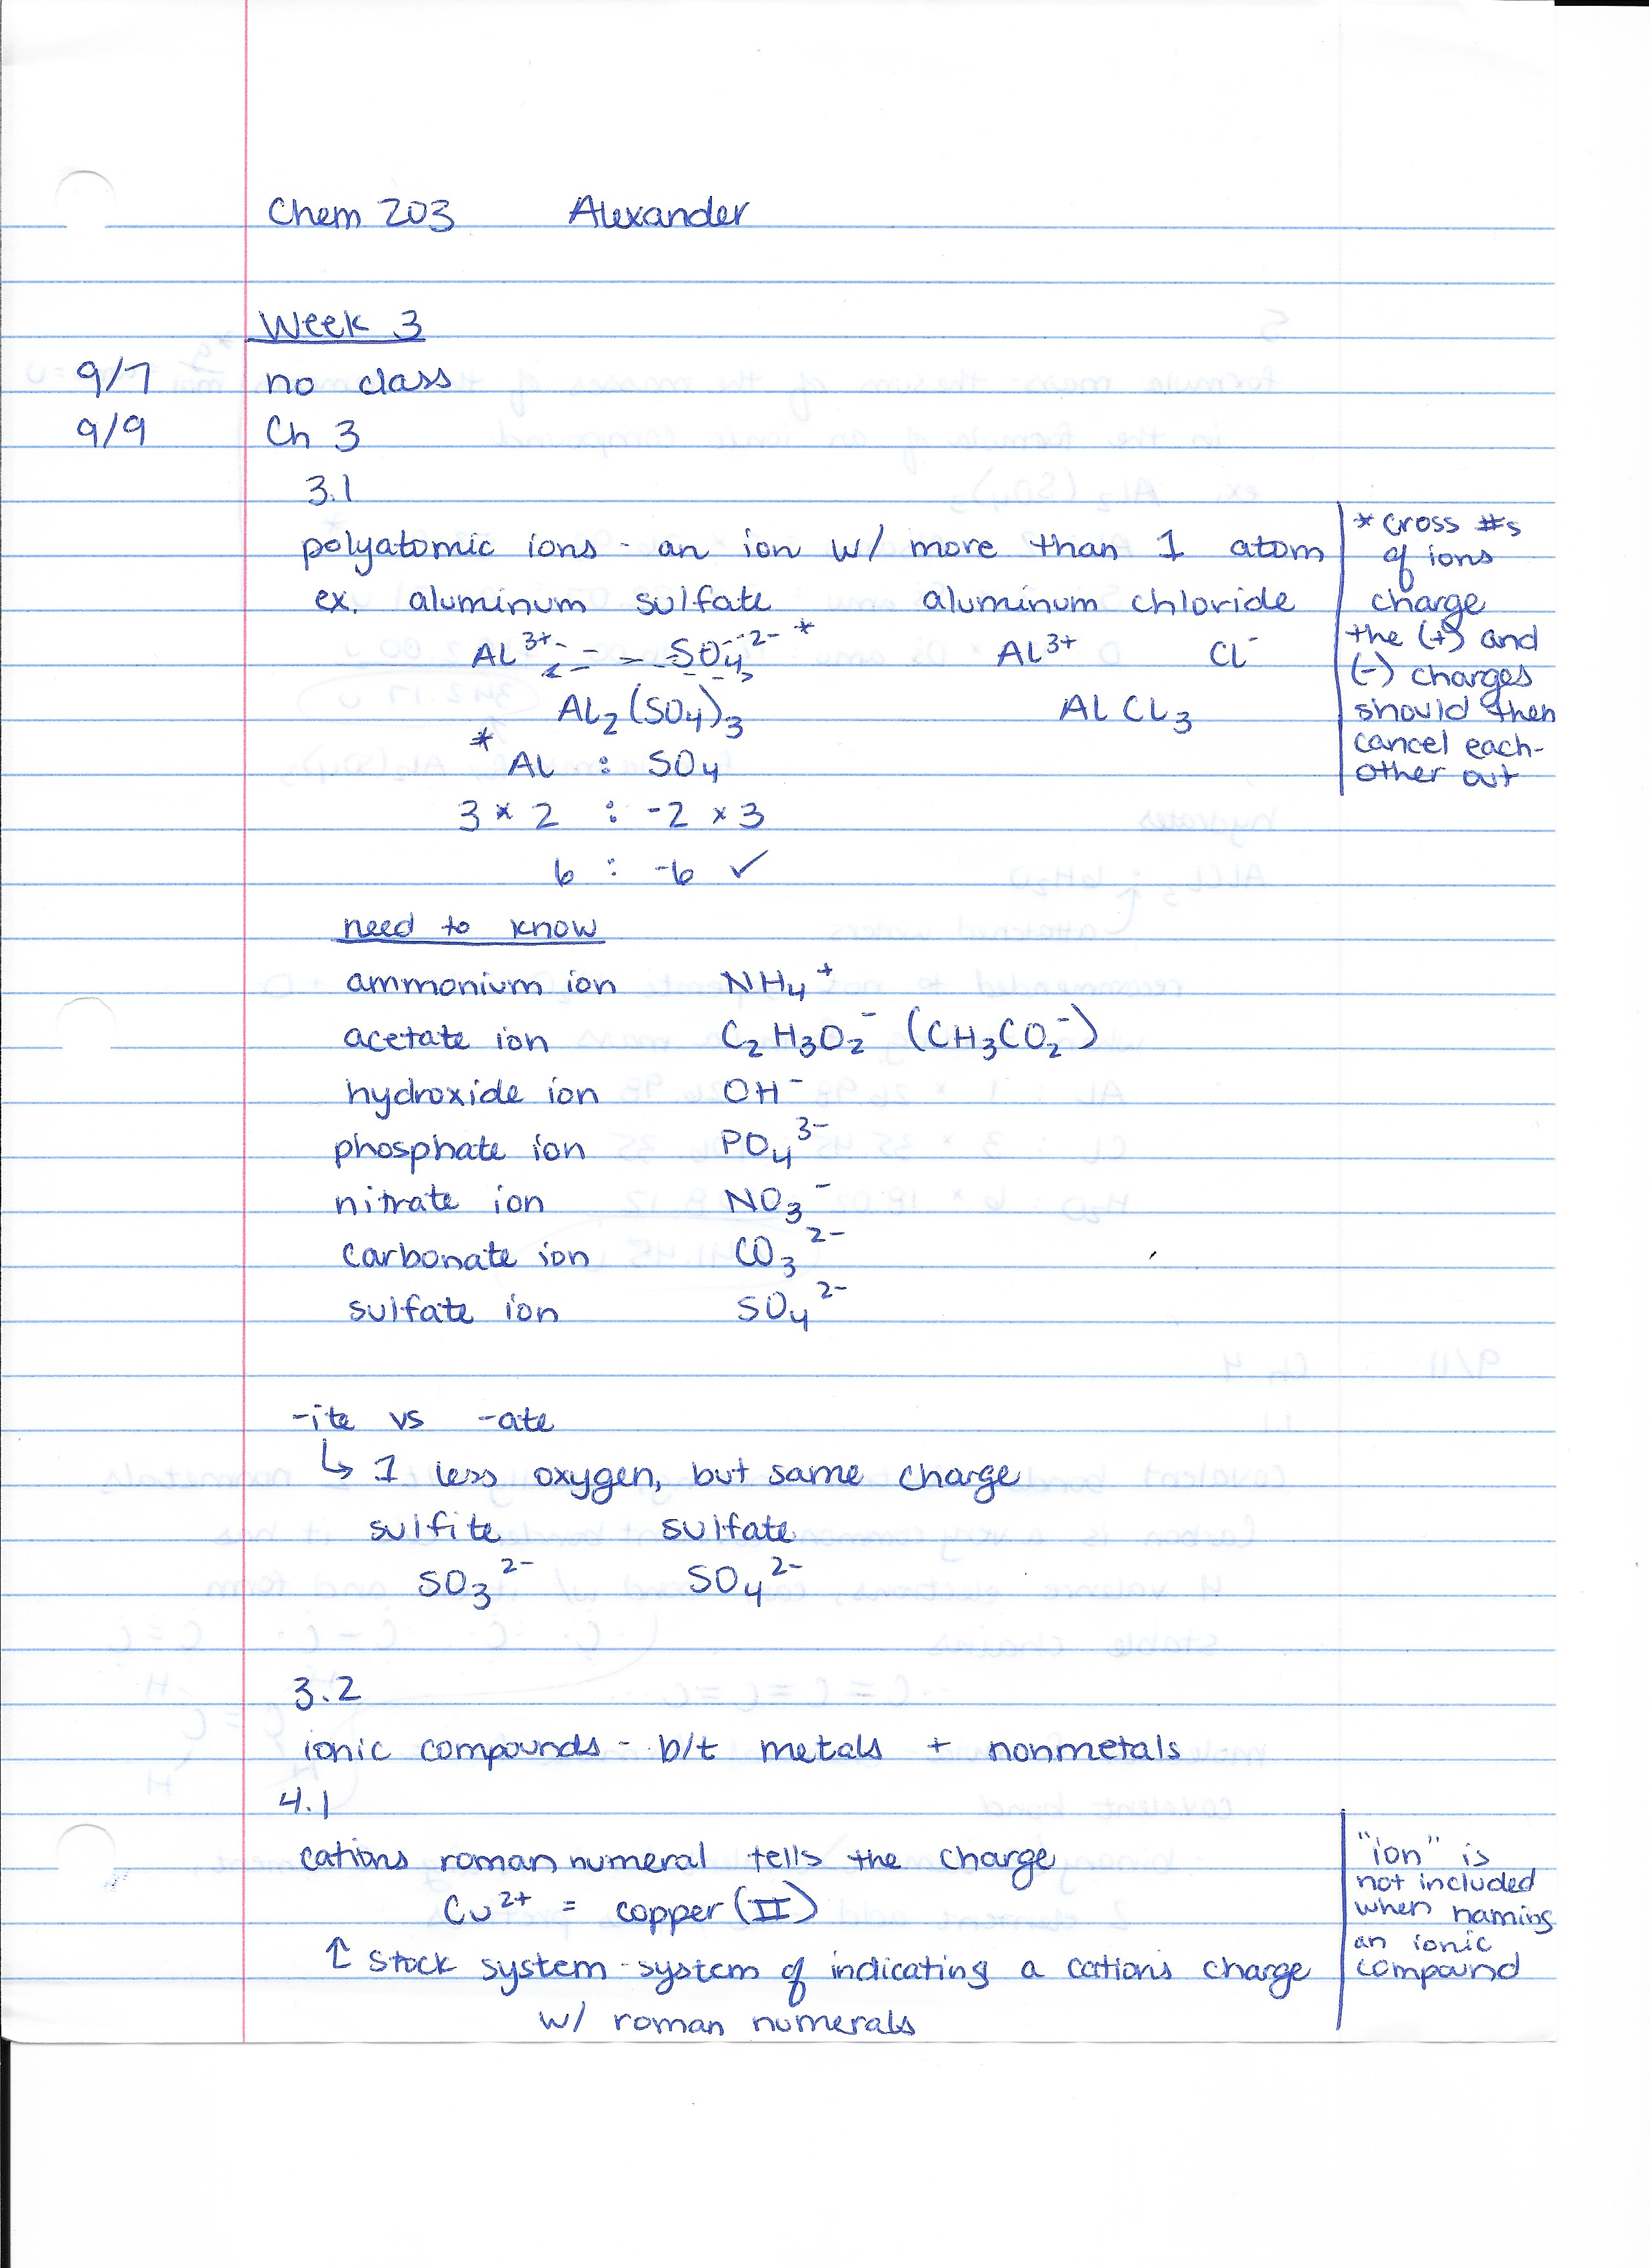 Chem 203 Alexander
Week 3
9/7 no class
9/9 Ch 3
3.1
polyatomic ions - an ion w/ more than 1 atom
ex. aluminum sulfate aluminum chloride
Al³⁺ SO₄²⁻ * Al³⁺ Cl⁻
Al₂(SO₄)₃ AlCl₃
* Al : SO₄
3 × 2 : -2 × 3
6 : -6 ✓
* cross #s
of ions
charge
the (+) and
(-) charges
should then
cancel each-
other out
need to know
ammonium ion NH₄⁺
acetate ion C₂H₃O₂⁻ (CH₃CO₂⁻)
hydroxide ion OH⁻
phosphate ion PO₄³⁻
nitrate ion NO₃⁻
carbonate ion CO₃²⁻
sulfate ion SO₄²⁻
-ite vs -ate
↳ 1 less oxygen, but same charge
sulfite sulfate
SO₃²⁻ SO₄²⁻
3.2
ionic compounds - b/t metals + nonmetals
4.1
cations roman numeral tells the charge
Cu²⁺ = copper (II)
↑ Stock system - system of indicating a cations charge
w/ roman numerals
"ion" is
not included
when naming
an ionic
compound